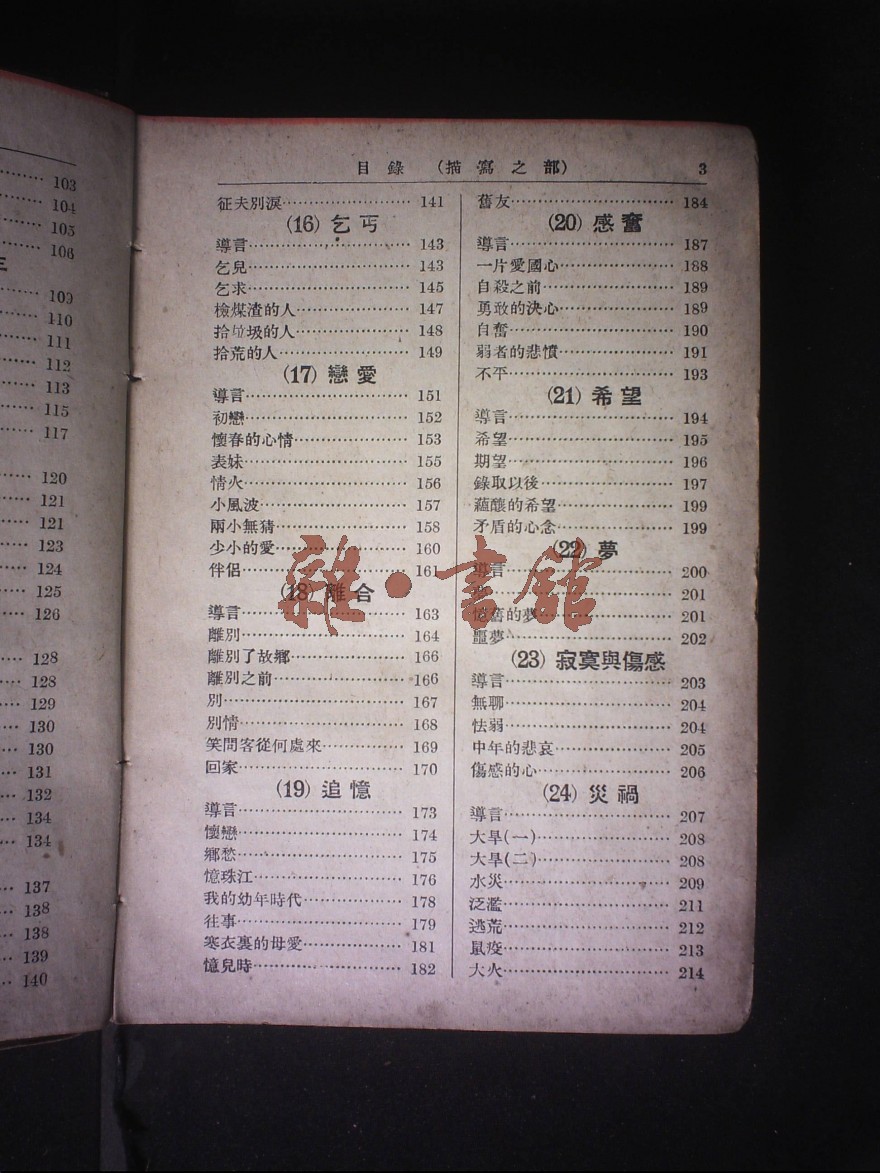 103
104
105
106
109
110
111
112
113
115
117
120
121
121
123
124
125
126
128
128
129
130
130
131
132
134
134
137
138
138
139
140
目錄 (描寫之部) 3
征夫別淚 141
(16) 乞丐
導言 143
乞兒 143
乞求 145
檢煤渣的人 147
拾垃圾的人 148
拾荒的人 149
(17) 戀愛
導言 151
初戀 152
懷春的心情 153
表妹 155
情火 156
小風波 157
兩小無猜 158
少小的愛 160
伴侶 161
(18) 離合
導言 163
離別 164
離別了故鄉 166
離別之前 166
別 167
別情 168
笑問客從何處來 169
回家 170
(19) 追憶
導言 173
懷戀 174
鄉愁 175
憶珠江 176
我的幼年時代 178
往事 179
寒衣裏的母愛 181
憶兒時 182
舊友 184
(20) 感奮
導言 187
一片愛國心 188
自殺之前 189
勇敢的決心 189
自奮 190
弱者的悲憤 191
不平 193
(21) 希望
導言 194
希望 195
期望 196
錄取以後 197
蘊釀的希望 199
矛盾的心念 199
(22) 夢
導言 200
201
舊的夢 201
噩夢 202
(23) 寂寞與傷感
導言 203
無聊 204
怯弱 204
中年的悲哀 205
傷感的心 206
(24) 災禍
導言 207
大旱(一) 208
大旱(二) 208
水災 209
泛濫 211
逃荒 212
鼠疫 213
大火 214
雜·書館